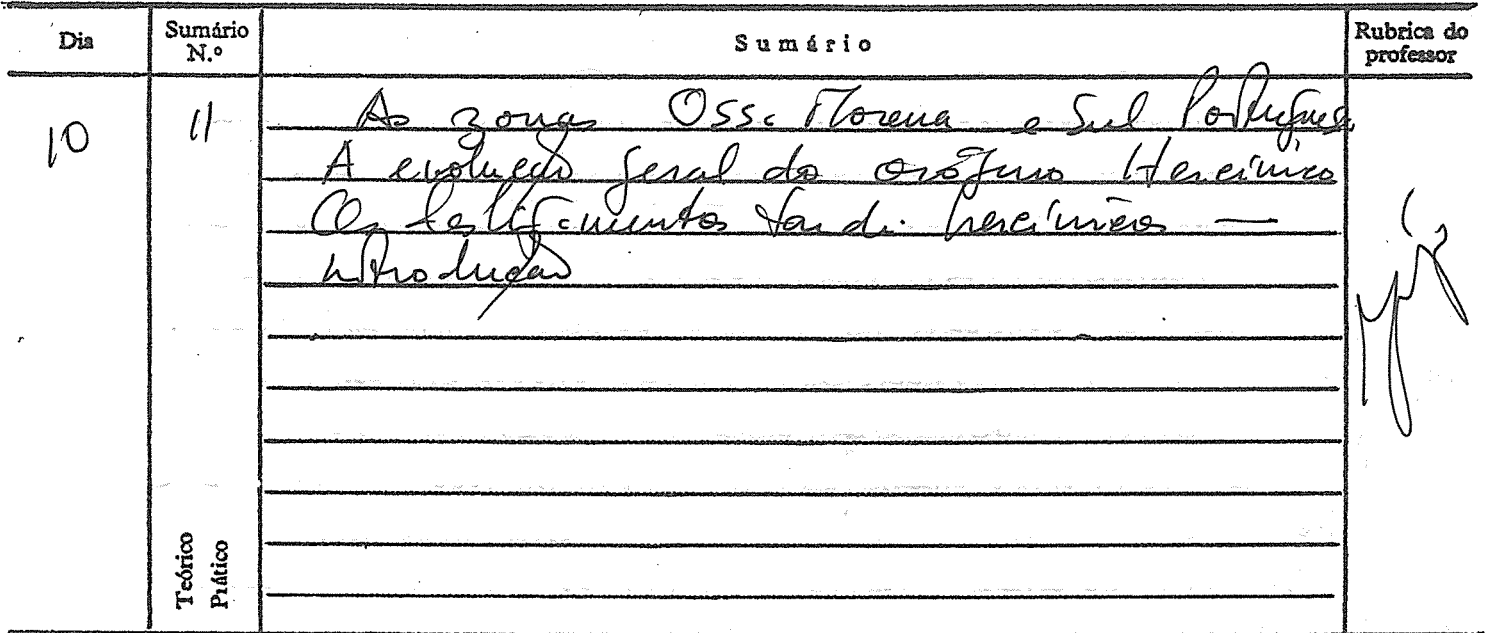 Dia
Sumário N.º
Sumário
Rubrica do professor
10
11
As zonas Ossa Morena e Sul Portuguesa
A evolução geral do orógeno Hercínico
Os tardi-hercínicos —
introdução
Teórico
Prático